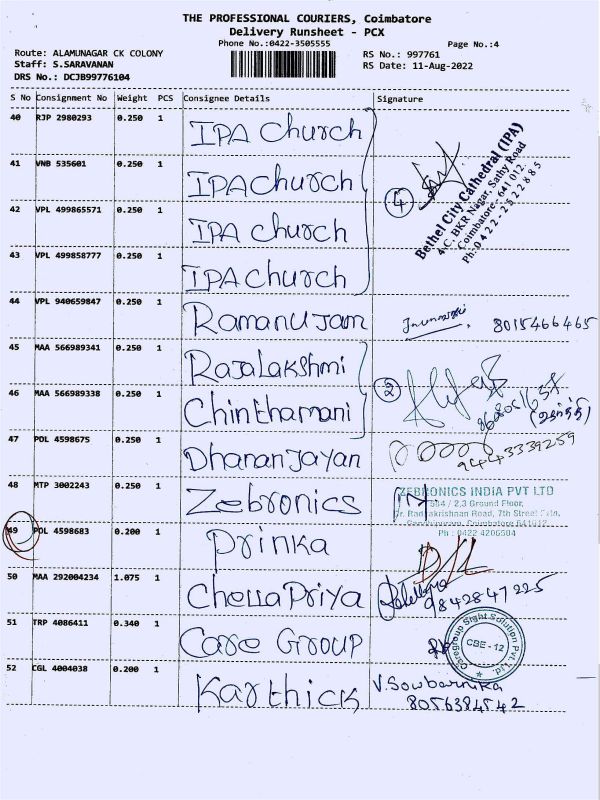 THE PROFESSIONAL COURIERS, Coimbatore
Delivery Runsheet - PCX
Phone No.:0422-3505555
Page No.:4
Route: ALAMUNAGAR CK COLONY
RS No.: 997761
Staff: S.SARAVANAN
RS Date: 11-Aug-2022
DRS No.: DCJB99776104
S No Consignment No Weight PCS Consignee Details Signature
40 RJP 2980293 0.250 1 IPA Church
41 VNB 535601 0.250 1 IPA Church
42 VPL 499865571 0.250 1 IPA Church
43 VPL 499858777 0.250 1 IPA Church
4
Bethel City Cathedral (IPA)
4-C, BKR Nagar, Sathy Road
Coimbatore - 641 012.
Ph: 0422-2522885
44 VPL 940659847 0.250 1 Ramanujam 8015466465
45 MAA 566989341 0.250 1 Rajalakshmi
46 MAA 566989338 0.250 1 Chinthamani
2
47 POL 4598675 0.250 1 Dhananjayan 9443339259
48 MTP 3002243 0.250 1 Zebronics
ZEBRONICS INDIA PVT LTD
2,3 Ground Floor,
Dr. Radhakrishnan Road, 7th Street Extn,
Coimbatore 641012
Ph : 0422 4206504
49 POL 4598683 0.200 1 Prinka
50 MAA 292004234 1.075 1 Chella Priya 9842847225
51 TRP 4086411 0.340 1 Care Group
Caregroup Sight Solution Pvt. Ltd.
CBE - 12
52 CGL 4004038 0.200 1 Karthick V. Sowbarnika
8056384542